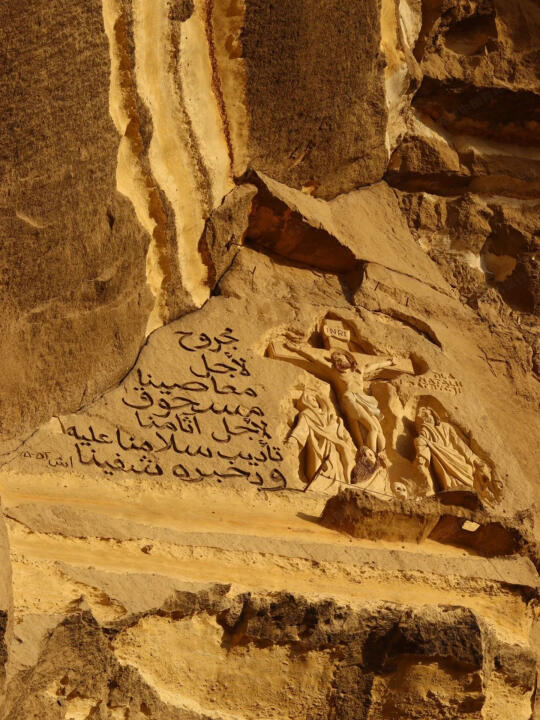 مجروح
لأجل
معاصينا
مسحوق
لأجل آثامنا
تأديب سلامنا عليه
وبحبره شفينا
اش ٥٣-٥
INRI